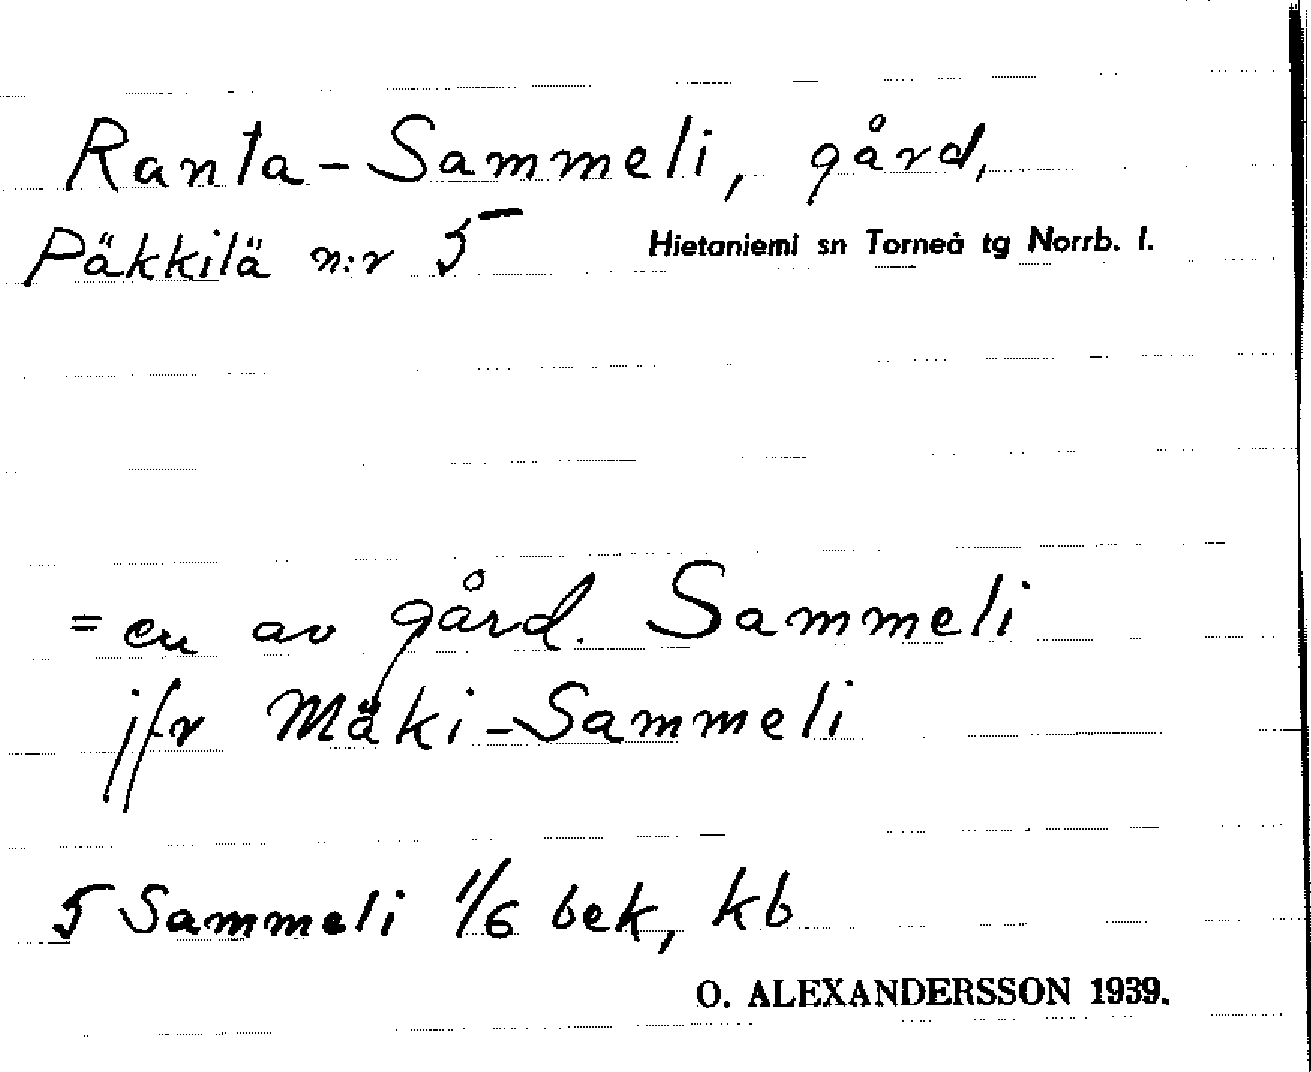 Ranta-Sammeli, gård,
Päkkilä n:r 5 Hietaniemi sn Torneå tg Norrb. l.
= en av gård. Sammeli
jfr Mäki-Sammeli
5 Sammeli 1/6 bek, kb
O. ALEXANDERSSON 1939.